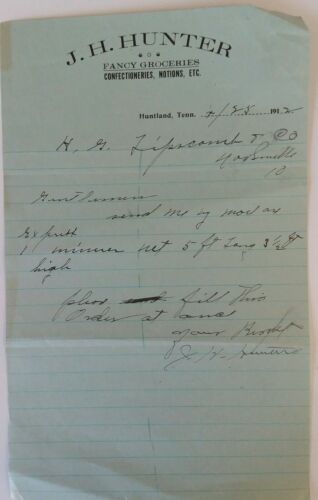 J. H. HUNTER
FANCY GROCERIES
CONFECTIONERIES, NOTIONS, ETC.
Huntland, Tenn. 4/25 1912
H. G. Lipscomb & Co
Gentlemen
send me by
Express
1 minnow net 5 ft long 3 1/2 ft
high
fill This
Order at once
your
J. H. Hunter